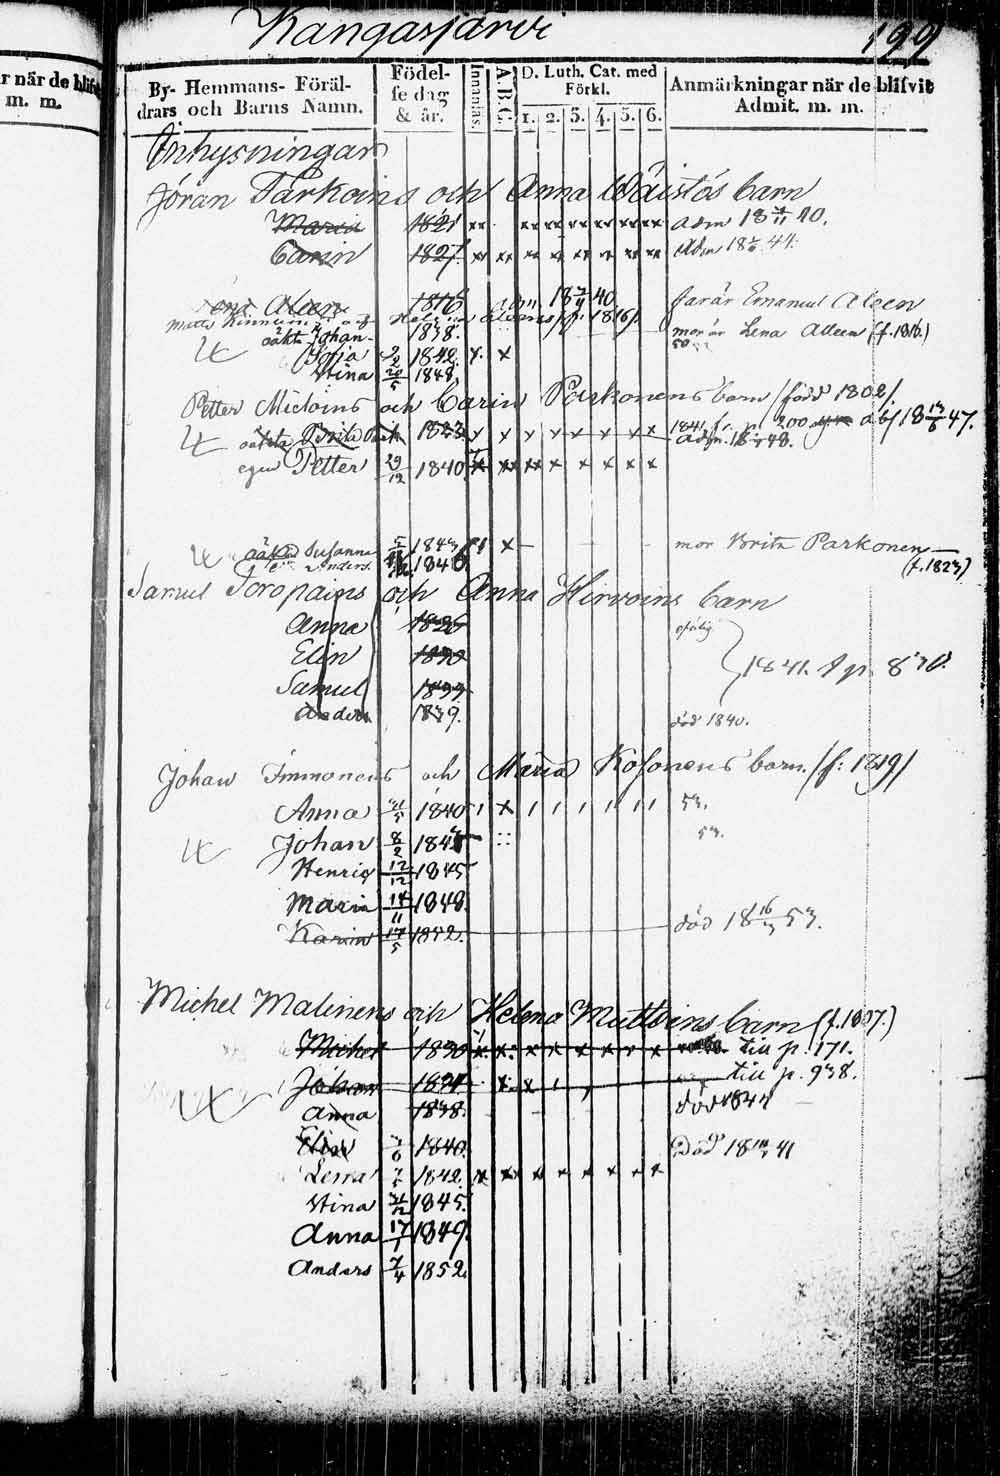 Kangasjärvi
199
r när de blifvit
m. m.
By- Hemmans- Föräl-
drars och Barns Namn.
Födel-
se dag
& år.
Innanläs.
A.B.C.
D. Luth. Cat. med
Förkl.
1. 2. 3. 4. 5. 6.
Anmärkningar när de blifvit
Admit. m. m.
Inhysningar
Jöran Parkoins och Anna Wäistös barn
Maria 1821 adm 18 11 40.
Carin 1827. Adm 18 44.
Aleen 1816 adm. 18 11 40. farär Emanuel Aleen
oäkta Johan 1838. mor är Lena Alleen (f. 1816.)
Sofia 2 1842.
Stina 20/5 1848.
Petter Michoins och Carin Parkonens barn (född 1802).
oäkta Brita 1823 1841 fr. p. 200 18 47.
egen Petter 29/12 1840.
oäkta Susanna 1843 mor Brita Parkonen
Anders. 1846. (f. 1823)
Samuel Toropains och Anna Hirvoins barn
Anna 1826 ofärlig
Elin 1830 1841. p. 830.
Samuel
Anders 1839. död 1840.
Johan Immonens och Maria Kosonens barn. (f: 1819)
Anna 31/5 1840 53.
Johan 8/2 1843 53.
Henric 12/12 1845
Maria 14/11 1848.
Karin 17/5 1852. död 18 16/3 53.
Michel Malinens och Helena Muttoins barn (f. 1807.)
Michel 1830 till p. 171.
Johan 1834 till p. 938.
Anna 1838. död 1844
Elin 1840. Död 18 41
Lena 7/5 1842.
Stina 31/12 1845.
Anna 17/1 1849.
Anders 7/4 1852.